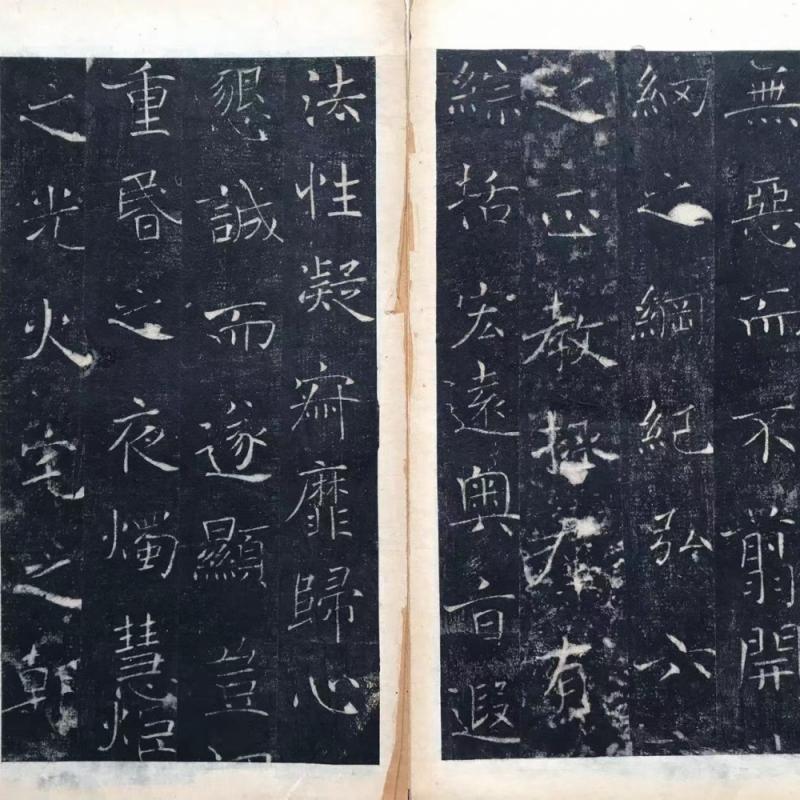 無惡而不翦開
網之綱紀弘六
之正教拯群有
綜括宏遠奧旨遐
法性凝寂靡歸心
懇誠而遂顯豈
重昏之夜燭慧炬
之光火宅之朝